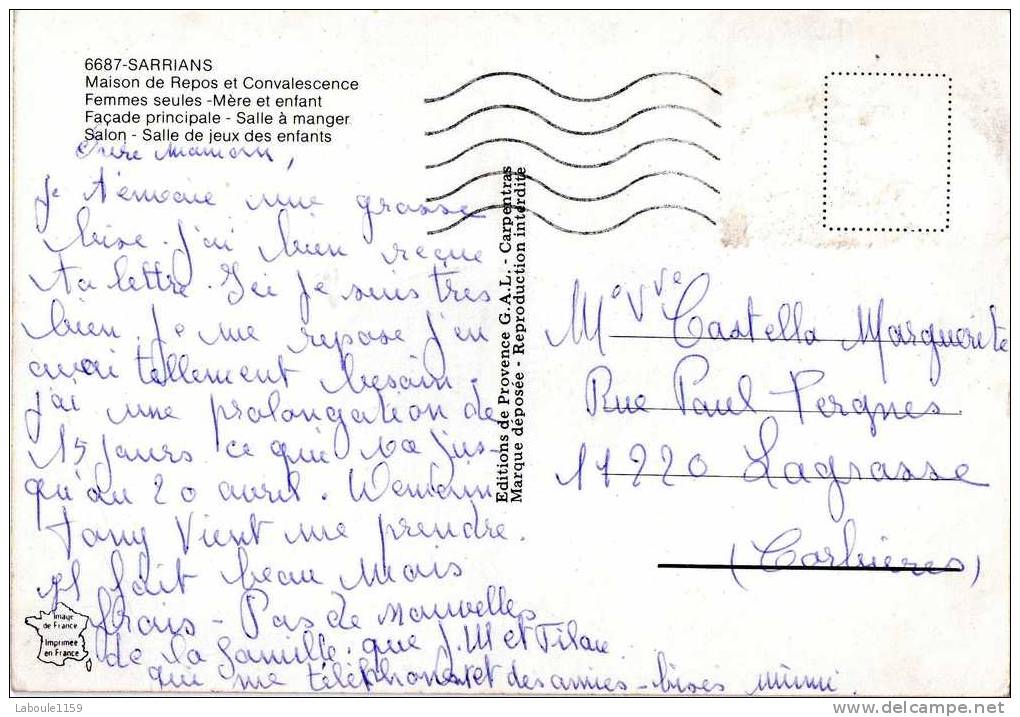 6687-SARRIANS
Maison de Repos et Convalescence
Femmes seules -Mère et enfant
Façade principale - Salle à manger
Salon - Salle de jeux des enfants
Chère Mamour,
Je t'envoie une grosse
bise. J'ai bien reçue
ta lettre. Ici je suis très
bien. Je me repose j'en
avai tellement besoin.
j'ai une prolongation de
15 jours ce qui va jus-
qu'au 20 avril.
Tony vient me prendre.
Il fait beau mais
frais - Pas de nouvelles
de la famille. que J.M et
qui me téléphones et des amies - bises mimi.
Editions de Provence G.A.L. - Carpentras
Marque déposée - Reproduction interdite
Me Vve Castella Marguerite
Rue Paul Vergnes
11220 Lagrasse
(Corbières)
Image
de France
Imprimée
en France
Laboule1159
delcampe.net